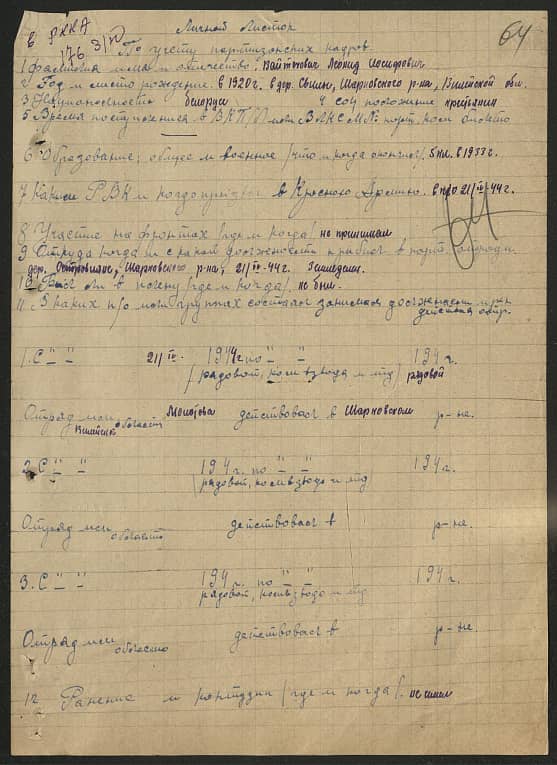 в РККА
Личной Листок
64
176 3/IV По учету партизанских кадров.
1 фамилия имя и отчество: Вайтович Леонид Иосифович
2 Год и место рождение. в 1920 г. в дер. Свилы, Шарковского р-на, Вилейской обл.
3 Национальность белорусы 4 соц положение крестьянин
5 Время поступления в ВКП/б/ или ВЛКСМ № парт. ком билета
6 Образование; общее и военное /что и когда окончил/. 5 кл. в 1933 г.
7 каким РВК и когда призван в Красную Армию. в п/о 21/IV-44 г.
8 Участие на фронтах /где и когда/ не принимал
9 Откуда когда и с какой должности прибыл в парт.
дер. Островляне, Шарковского р-на, 21/IV-44 г. Земледел.
10 Был ли в плену /где и когда/. не был.
11 В каких п/о или группах состоял занимал должность и
действия отр.
1. С " " 21/IV. 1944 г по " " 194 г.
/рядовой, ком взвода и тд/ рядовой
Отряд им. Молотова действовал в Шарковском р-не.
Вилейской области
2. С " " 194 г. по " " 194 г.
/рядовой, ком взвода и тд
Отряд им действовал в р-не.
область
3. С " " 194 г. по " " 194 г.
рядовой, ком взвода и тд
Отряд им действовал в р-не.
область
12 Ранение и контузии /где и когда/. не имел